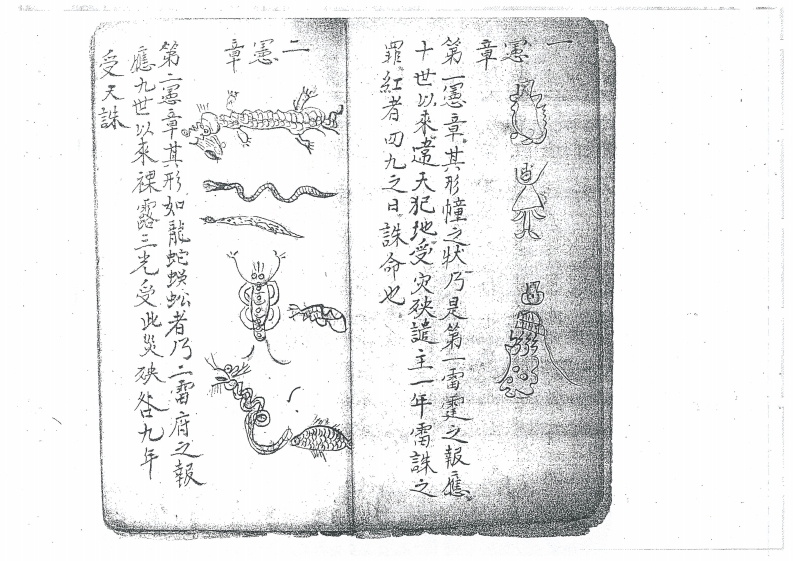 一憲章
第一憲章其形幢之狀乃是第一雷霆之報應
十世以來違天犯地受灾殃譴主一年雷誅之
罪紅者四九之日誅命也
二憲章
第二憲章其形如龍蛇蜈蚣者乃二雷府之報
應九世以來裸露三光受此災殃咎九年
受天誅